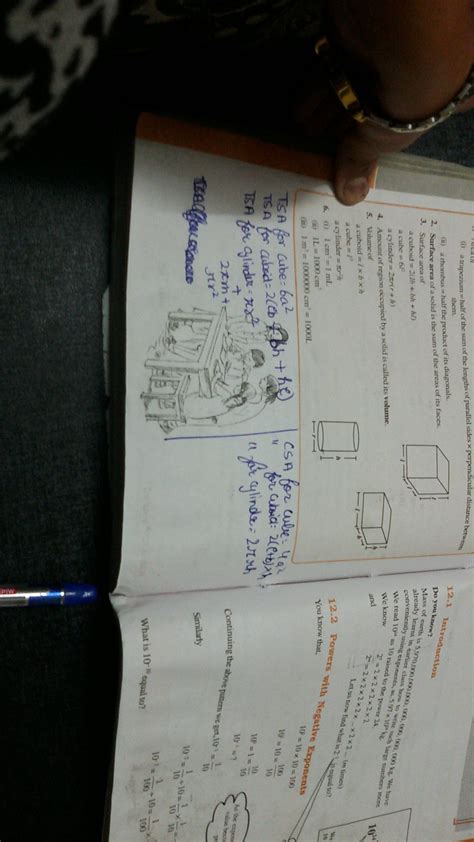 (i) a trapezium = half of the sum of the lengths of parallel sides × perpendicular distance between
them.
(ii) a rhombus = half the product of its diagonals.
2. Surface area of a solid is the sum of the areas of its faces.
3. Surface area of
a cuboid = 2(lb + bh + hl)
a cube = 6l²
a cylinder = 2πr(r + h)
4. Amount of region occupied by a solid is called its volume.
5. Volume of
a cuboid = l × b × h
a cube = l³
a cylinder = πr²h
6. (i) 1 cm³ = 1 mL
(ii) 1L = 1000 cm³
(iii) 1 m³ = 1000000 cm³ = 1000L
TSA for cube = 6a²
TSA for cuboid = 2(lb + bh + hl)
TSA for cylinder =
CSA for cube = 4a²
" for cuboid = 2(l+b)×h
" for cylinder = 2πrh
12.1 Introduction
Do you know?
Mass of earth is 5,970,000,000,000, 000, 000, 000, 000 kg. We have
already learnt in earlier class how to write such large numbers more
conveniently using exponents, as, 5.97 × 10²⁴ kg.
We read 10²⁴ as 10 raised to the power 24.
We know 2⁵ = 2 × 2 × 2 × 2 × 2
and 2ᵐ = 2 × 2 × 2 × 2 × ... × 2 × 2 ... (m times)
Let us now find what is 2⁻² is equal to?
12.2 Powers with Negative Exponents
You know that,
Continuing the above pattern we get,
Similarly
What is 10⁻¹⁰ equal to?